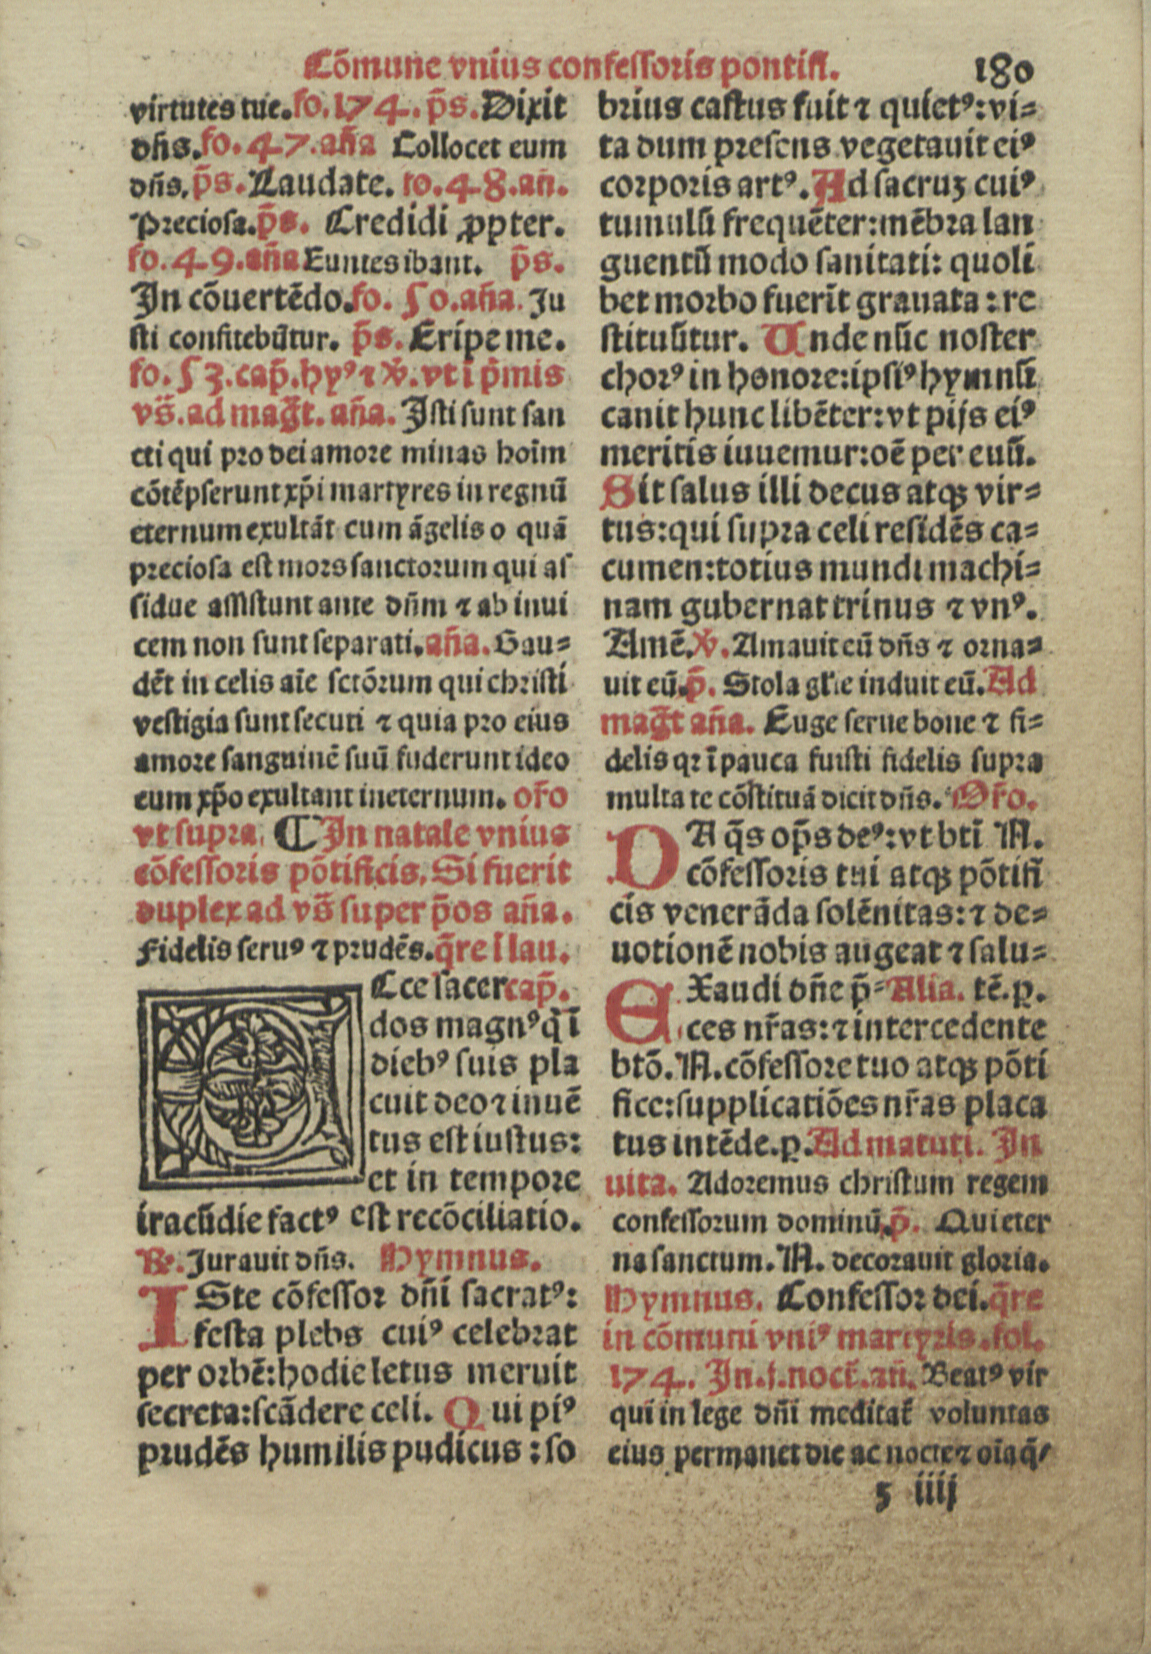 Cõmune vnius confessoris pontifi. 180
virtutes tue. fo. 174. p̃s. Dixit
dñs. fo. 47. aña Collocet eum
dñs. p̃s. Laudate. fo. 48. añ.
Preciosa. p̃s. Credidi ꝓpter.
fo. 49. aña Euntes ibant. p̃s.
In cõuertẽdo. fo. 50. aña. Ju
sti confitebũtur. p̃s. Eripe me.
fo. 53. cap̃. hyꝰ ⁊ ℣. vt ĩ p̃mis
vs̃. ad mag̃t. aña. Isti sunt san
cti qui pro dei amore minas hoĩm
cõtẽpserunt xp̃i martyres in regnũ
eternum exultãt cum ãgelis o quã
preciosa est mors sanctorum qui as
sidue assistunt ante dñm ⁊ ab inui
cem non sunt separati. aña. Gau⸗
dẽt in celis aĩe sctõrum qui christi
vestigia sunt secuti ⁊ quia pro eius
amore sanguinẽ suũ fuderunt ideo
cum xp̃o exultant ineternum. or̃o
vt supra. ¶ In natale vnius
cõfessoris põtificis. Si fuerit
duplex ad vs̃ super p̃os aña.
Fidelis seruꝰ ⁊ prudẽs. q̃re ĩ lau.
Ecce sacer cap̃.
dos magnꝰ q̃ ĩ
diebꝰ suis pla
cuit deo ⁊ inuẽ
tus est iustus:
et in tempore
iracũdie factꝰ est recõciliatio.
℟. Jurauit dñs. Hymnus.
ISte cõfessor dñi sacratꝰ:
festa plebs cuiꝰ celebrat
per orbẽ: hodie letus meruit
secreta: scãdere celi. Qui piꝰ
prudẽs humilis pudicus: so
brius castus fuit ⁊ quietꝰ: vi⸗
ta dum presens vegetauit eiꝰ
corporis artꝰ. Ad sacruꝫ cuiꝰ
tumulũ frequẽter: mẽbra lan
guentũ modo sanitati: quoli
bet morbo fuerĩt grauata: re
stitũũtur. Unde nũc noster
chorꝰ in honore: ipsiꝰ hymnũ
canit hunc libẽter: vt pijs eiꝰ
meritis iuuemur: oẽ per euũ.
Sit salus illi decus atqꝫ vir⸗
tus: qui supra celi residẽs ca⸗
cumen: totius mundi machi⸗
nam gubernat trinus ⁊ vnꝰ.
Amẽ. ℣. Amauit eũ dñs ⁊ orna⸗
uit eũ. p̃. Stola gl̃ie induit eũ. Ad
mag̃t aña. Euge serue bone ⁊ fi⸗
delis qꝛ ĩ pauca fuisti fidelis supra
multa te cõstituã dicit dñs. Or̃o.
DA q̃s op̃s deꝰ: vt bt̃i N.
cõfessoris tui atqꝫ põtifi
cis venerãda solẽnitas: ⁊ de⸗
uotionẽ nobis augeat ⁊ salu⸗
EXaudi dñe p̃⸗ Alia. tẽ. ꝑ.
ces nr̃as: ⁊ intercedente
btõ. N. cõfessore tuo atqꝫ põti
fice: supplicatiões nr̃as placa
tus intẽde. ꝑ. Ad matuti. In
uita. Adoremus christum regem
confessorum dominũ. p̃. Qui eter
na sanctum. N. decorauit gloria.
Hymnus. Confessor dei. q̃re
in cõmuni vniꝰ martyris. fol.
174. In .j. noct̃. añ. Beatꝰ vir
qui in lege dñi meditat̃ voluntas
eius permanet die ac nocte ⁊ oĩa q̃⸝
ꝫ iiij